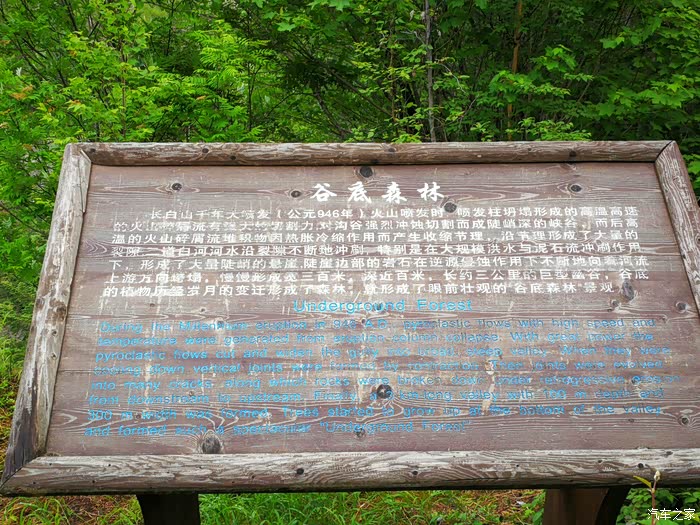 谷底森林
长白山千年大喷发（公元946年）火山喷发时，喷发柱坍塌形成的高温高速
的火山碎屑流有强大的切割力,对沟谷强烈冲蚀切割而成陡峭深的峡谷，而后高
温的火山碎屑流堆积物因热胀冷缩作用而产生收缩节理，沿节理形成了大量的
裂隙,二道白河河水沿裂隙不断地冲刷,特别是在大规模洪水与泥石流冲刷作用
下，形成了大量陡峭的悬崖,陡崖边部的岩石在逆源侵蚀作用下不断地向着河流
上游方向坍塌，慢慢形成宽三百米，深近百米，长约三公里的巨型幽谷，谷底
的植物历经岁月的变迁形成了森林，就形成了眼前壮观的"谷底森林"景观。
Underground Forest
During the Millennium eruption in 946 A.D., pyroclastic flows with high speed and
temperature were generated from eruption column collapse. With great power the
pyroclastic flows cut and
cooling down vertical joints were formed by contraction. Then joints were eroded
into many cracks, along which rocks were broken down under retrogressive erosion
from downstream to upstream. Finally a valley with 100 m depth and
300 m width was formed. Trees started to grow up at the bottom of the valley
and formed such a spectacular "Underground Forest".
汽车之家